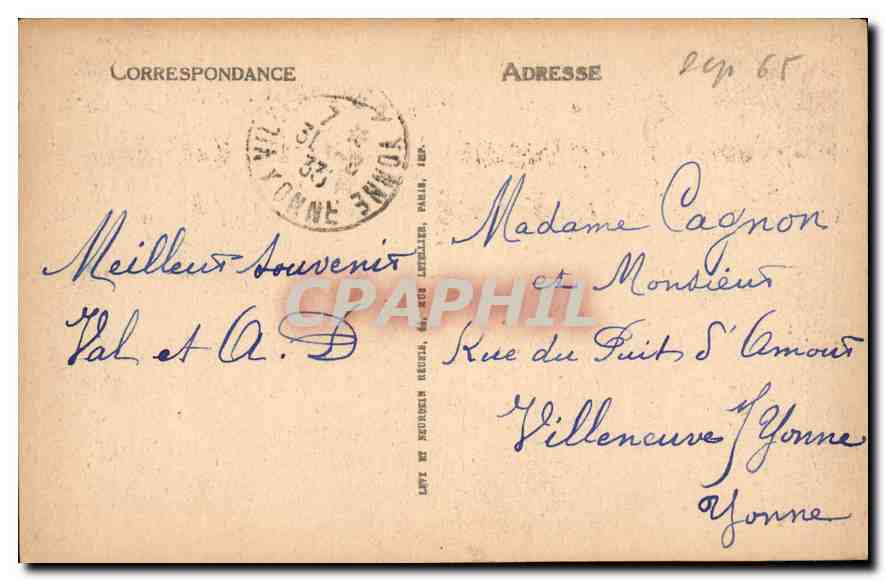 CORRESPONDANCE
ADRESSE
65
YONNE YONNE
33
Meilleur souvenir
Val et A. D
Madame Cagnon
et Monsieur
Rue du Puits d'Amour
Villeneuve s/ Yonne
Yonne
LEVY ET NEURDEIN RÉUNIS, 44, RUE LETELLIER, PARIS, IMP.
CPAPHIL